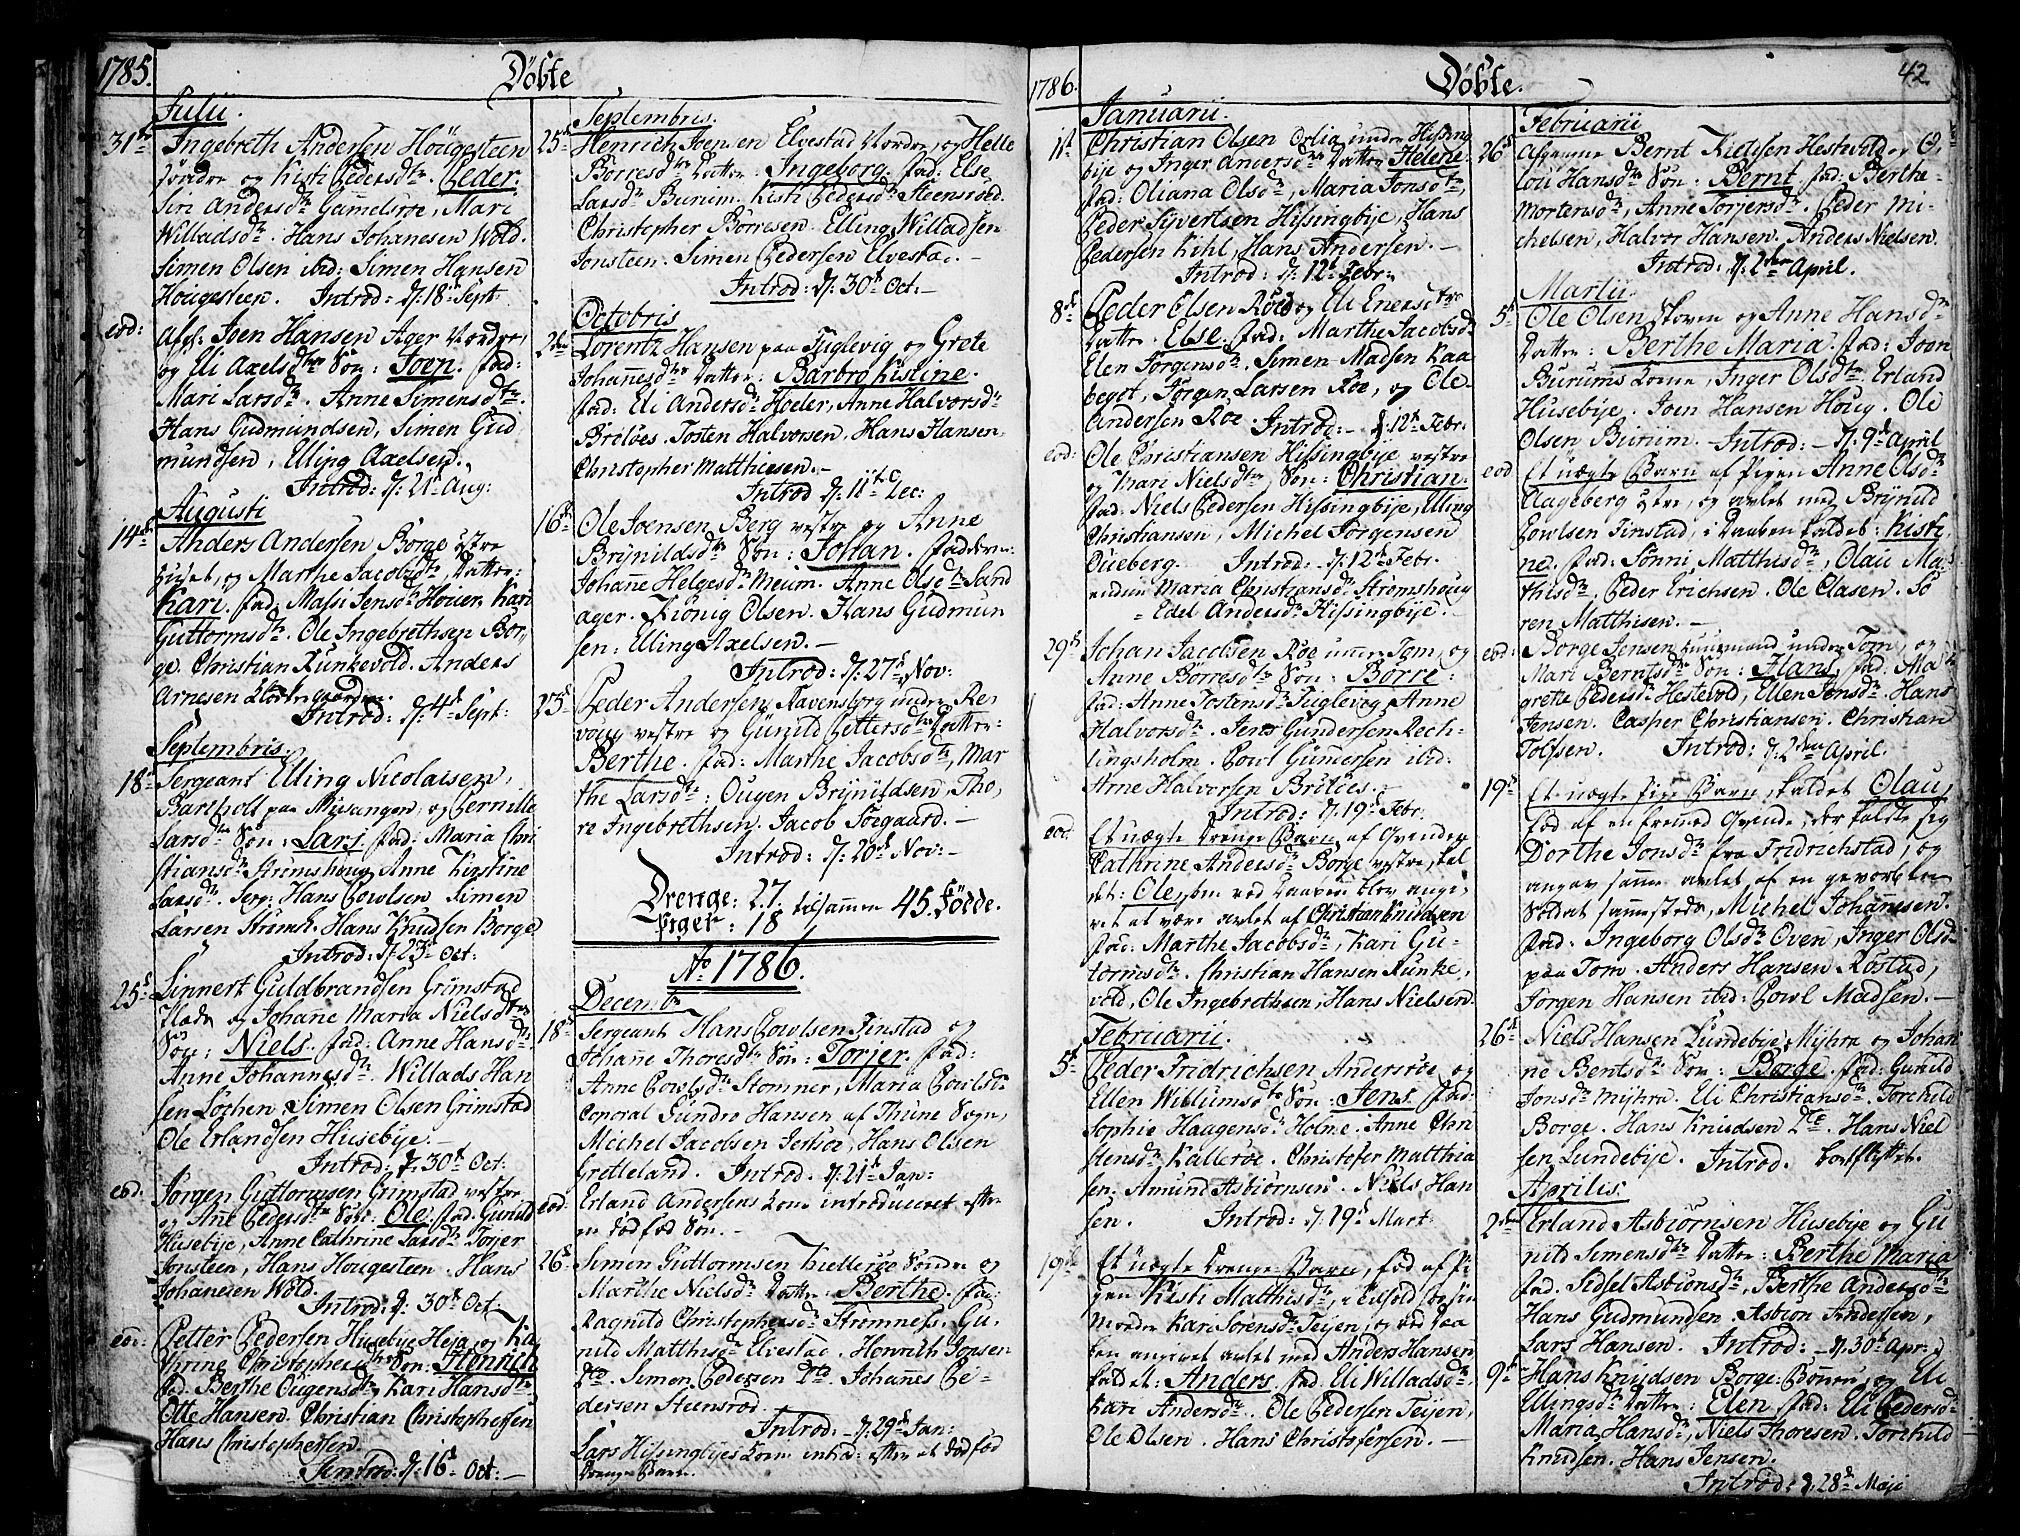 1785.
Döbte
Julii
31te Ingebreth Andersen Hougesteen
Söndre og Kisti Pedersdtr. Peder.
Siri Andersdtr Gamelsröe, Mari
Willadsdtr. Hans Johanesen Wold.
Simen Olsen ibid: Simen Hansen
Hougesteen. Introd: d: 18 Sept:
eod: Afg: Joen Hansen Ager Nordre,
og Eli Axelsdtr Sön: Joen. fad:
Mari Larsdtr. Anne Simensdtr.
Hans Gudmundsen, Simen Gud
mundsen, Elling Axelsen.
Introd: d: 21 Aug:
Augusti
14de Anders Andersen Borge östre
huset, og Marthe Jacobsdtr Datter:
Kari. fad, Massi Jensdtr Houer. Kari
Guttormsdtr. Ole Ingebrethsen Bor,
ge. Christian Runkevold. Anders
Arnesen Klostergaarden.
Introd: d: 4d Sept:
Septembris.
18d Sergeant Elling Nicolaisen,
Bartholt paa Misangen, og Pernille
Larsdtr Sön: Lars. fad: Maria Chri
stiansdtr Strömshoug, Anne Kirstine
Larsdtr. Serg: Hans Povelsen Simen
Larsen Strömsh. Hans Knudsen Borge
Introd: d. 23d Oct:
25d Linnert Guldbrandsen Grimstad
og Johane Maria Nielsdtr
Sön: Niels. fad: Anne Hansdtr.
Anne Johannesdtr. Willads Han
sen Löchen. Simen Olsen Grimstad
Ole Erlandsen Husebye.
Introd: d. 30d Oct:
eod. Jörgen Guttormsen Grimstad vestre
og Ane Pedersdtr Sön: Ole. fad. Gunild
Husebije, Anne Cathrine Larsdtr Torjer
Jonsteen, Hans Hougesteen. Hans
Johanesen Wold.
Introd: d: 30d Oct.
eod: Petter Pedersen Husebije Heja og Ka
thrine Christophersdtr Sön: Henrich
fad. Berthe Ougensdtr, Kari Hansdtr.
Otte Hansen. Christian Christophersen
Hans Christophersen.
Introd: d: 16d Oct:
Septembris.
25d Henrich Joensen Elvestad Nordre, og Helle
Börresdtr Datter: Ingeborg. fad: Else
Larsdtr Burum. Kisti Pedersdtr Steensröed.
Christopher Börresen. Elling Willadsen
Jonsteen. Simen Pedersen Elvestad.
Introd: d. 30d Oct:
Octobris
2den Lorentz Hansen paa Fuglevig og Grete
Johannesdtr Datter: Barbro Kistine.
fad: Eli Andersdtr Hoeler, Anne Halvorsdtr
Brilöes. Tosten Halvorsen. Hans Hansen.
Christopher Matthiesen.
Introd d: 11te Dec:
16d Ole Joensen Berg vestre og Anne
Brynildsdtr Sön: Johan. faddere:
Johane Helgesdtr Meum. Anne Olsdtr Sand
ager. König Olsen. Hans Gudmun
sen: Elling Axelsen.
Introd: d: 27d Nov:
23d Peder Andersen Ravensborg under Re,
voug vestre og Gunild Pettersdtr Datter:
Berthe. fad: Marthe Jacobsdtr, Mar
the Larsdtr: Ougen Brynildsen, Tho,
re Ingebrethsen. Jacob Soegaard.
Introd: d: 20d Nov:
Drenge: 27. tilsammen 45. födde.
Piger: 18
Ao 1786.
Decembr
18d Sergeant Hans Povelsen Tinstad og
Johanne Thoresdtr Sön: Torjer. fad:
Anne Povelsdtr Stomner, Maria Povelsdtr
Coporal Gundro Hansen af Thune Sogn,
Michel Jacobsen Jersöe, Hans Olsen
Gretteland. Introd: d. 21d Jan:
eod: Erland Andersens Kone introduceret efter
en död föd Sön.
26d Simen Guttormsen Kielleröe Söndre og
Marthe Nielsdtr Datter: Berthe. fad:
Ragnild Christophersdtr Strömnefs, Gu,
nild Matthisdtr Elvestad. Henrich Jonsen
dto. Simen Pedersen dto. Johannes Pe-
dersen Steensröd.
Introd: d. 29d Jan:
Lars Hissingbijes Kone introd: efter et död föd
Drenge Barn.
1786.
Döbte.
42
Januarii.
1te Christian Olsen Dölia under Hissing
bije og Inger Andersdtr Datter Helene.
fad: Oliana Olsdtr, Maria Jonsdtr,
Peder Syvertsen Hissingbije, Hans
Pedersen Kihl, Hans Andersen.
Introd: d: 12te Febr:
8d Peder Olsen Röed og Eli Enersdtr
Datter: Else. fad: Marthe Jacobsdtr
Elen Jörgensdtr. Simen Madsen Kaa
beget, Jörgen Larsen Roe, og Ole
Andersen Roe. Introd: d. 12te Febr.
eod: Ole Christiansen Hissingbije vestre
og Mari Nielsdtr Sön: Christian.
fad: Niels Pedersen Hissingbije, Elling
Christiansen, Michel Jörgensen
Oueberg. Introd: d. 12te Febr.
Maria Christiansdtr Strömshoug
Edel Andersdtr Hissingbije.
29d Johan Jacobsen Röe under Tom, og
Anne Börresdtr Sön: Börre:
fad: Anne Tostensdtr Fuglevig, Anne
Halvorsdtr. Jens Gundersen Rech-
lingsholm. Powl Gundersen ibid:
Arne Halvorsen Brilöes.
Introd: d. 19d Febr.
eod. Et uægte Drenge Barn af Qvinden
Cathrine Andersdtr Borge vestre, kal
det: Ole, som ved Daaben blev ange,
vet at være avlet af Christian Knudsen
fad: Marthe Jacobsdtr, Kari Gu-
tormsdtr. Christian Hansen Runke,
vold, Ole Ingebrethsen, Hans Nielsen.
Februarii.
5d Peder Fridrichsen Anderröe og
Ellen Willumsdtr Sön: Jens. fad:
Sophie Haagensdtr Holme. Anne Chri
stensdtr Kalleröe. Christofer Matthia
sen. Amund Asbiörnsen. Niels Han
sen. Introd: d. 19d Mart:
19de Et uægte Drenge-Barn, fød af Pi
gen Kisti Matthisdtr, 
Moder Kari Sörensdtr Teijen, og ved Daa
ben angivet avlet med Anders Hansen
kaldet: Anders. fad. Eli Willadsdtr.
Kari Andersdtr. Ole Pedersen Teijen,
Ole Olsen. Hans Christofersen.
Februarii
26d Afgangne Bernt Kieldsen Hestvold og O,
lou Hansdtr Sön: Bernt. fad: Berthe
Mortensdtr, Anne Torjersdtr. Peder Mi-
chelsen, Halvor Hansen. Anders Nielsen.
Introd: d. 2den April.
Martii.
5d Ole Olsen Skoven og Anne Hansdtr
Datter: Berthe Maria. fad: Joen
Burums Kone, Inger Olsdtr. Erland
Husebije. Joen Hansen Houg. Ole
Olsen Burum. Introd: d. 9d April
eod Et uægte Barn af Pigen Anne Olsdtr
Aageberg östre, og avlet med Brynild
Powlsen Tinstad, i Daaben kaldet: Kisti,
ne. fad: Sönni Matthisdtr, Olau Ma-
thisdtr, Peder Erichsen. Ole Clasen. Sö
ren Matthisen.
eod: Borge Jensen huusmand under Tom, og
Mari Berntsdtr Sön: Hans. fad. Ma
grete Pedersdtr Hestevod, Ellen Jensdtr. Hans
Jensen. Casper Christiansen. Christian
Tolfsen. Introd: d. 2den April.
19d Et uægte Pige Barn, kaldet Olau,
fød af en fremed Qvinde, der kaldte sig
Dorthe Jonsdtr fra Fridrichstad, og
angav samme avlet af en gevorben
Soldat sammestedr, Michel Johannesen.
fad: Ingeborg Olsdtr Oven, Inger Olsdtr
paa Tom. Anders Hansen Röstad,
Jörgen Hansen ibid: Powl Madsen.
26d Niels Hansen Lundebije Mijhra og Johan
ne Bentsdtr Sön: Borge. fad: Gunild
Jonsdtr Mijhra. Eli Christiansdtr. Torchild
Borge. Hans Knudsen Dto. Hans Niel
sen Lundebije. Introd. bortflyttet.
Aprilis:
2den Erland Asbiörnsen Husebije og Gu
nild Simensdtr Datter: Berthe Maria
fad. Sidsel Asbionsdtr. Berthe Andersdtr
Hans Gudmundsen, Asbion Andersen,
Lars Hansen. Introd: d. 30d Apr:
9d Hans Knudsen Borge og Eli
Ellingsdtr Datter: Elen. fad: Eli Pedersdtr
Maria Hansdtr, Niels Thoresen. Torchild
Knudsen. Hans Jensen.
Introd: d. 28d Maji